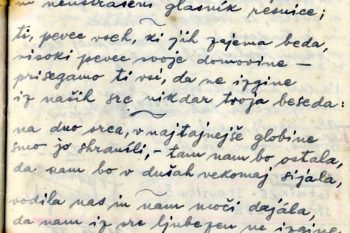 in neustrašeni glasnik resnice;
ti, pevec vseh, ki jih zajema beda,
visoki pevec svoje domovine –
prisegamo ti vsi, da ne izgine
iz naših src nikdar tvoja beseda:
na dno srca, v najtajnejše globine
smo jo shranili, – tam nam bo ostala,
da nam bo v dušah vedomaj sijála,
vodila nas in nam moči dajála,
da nam iz src ljubezen ne izgine